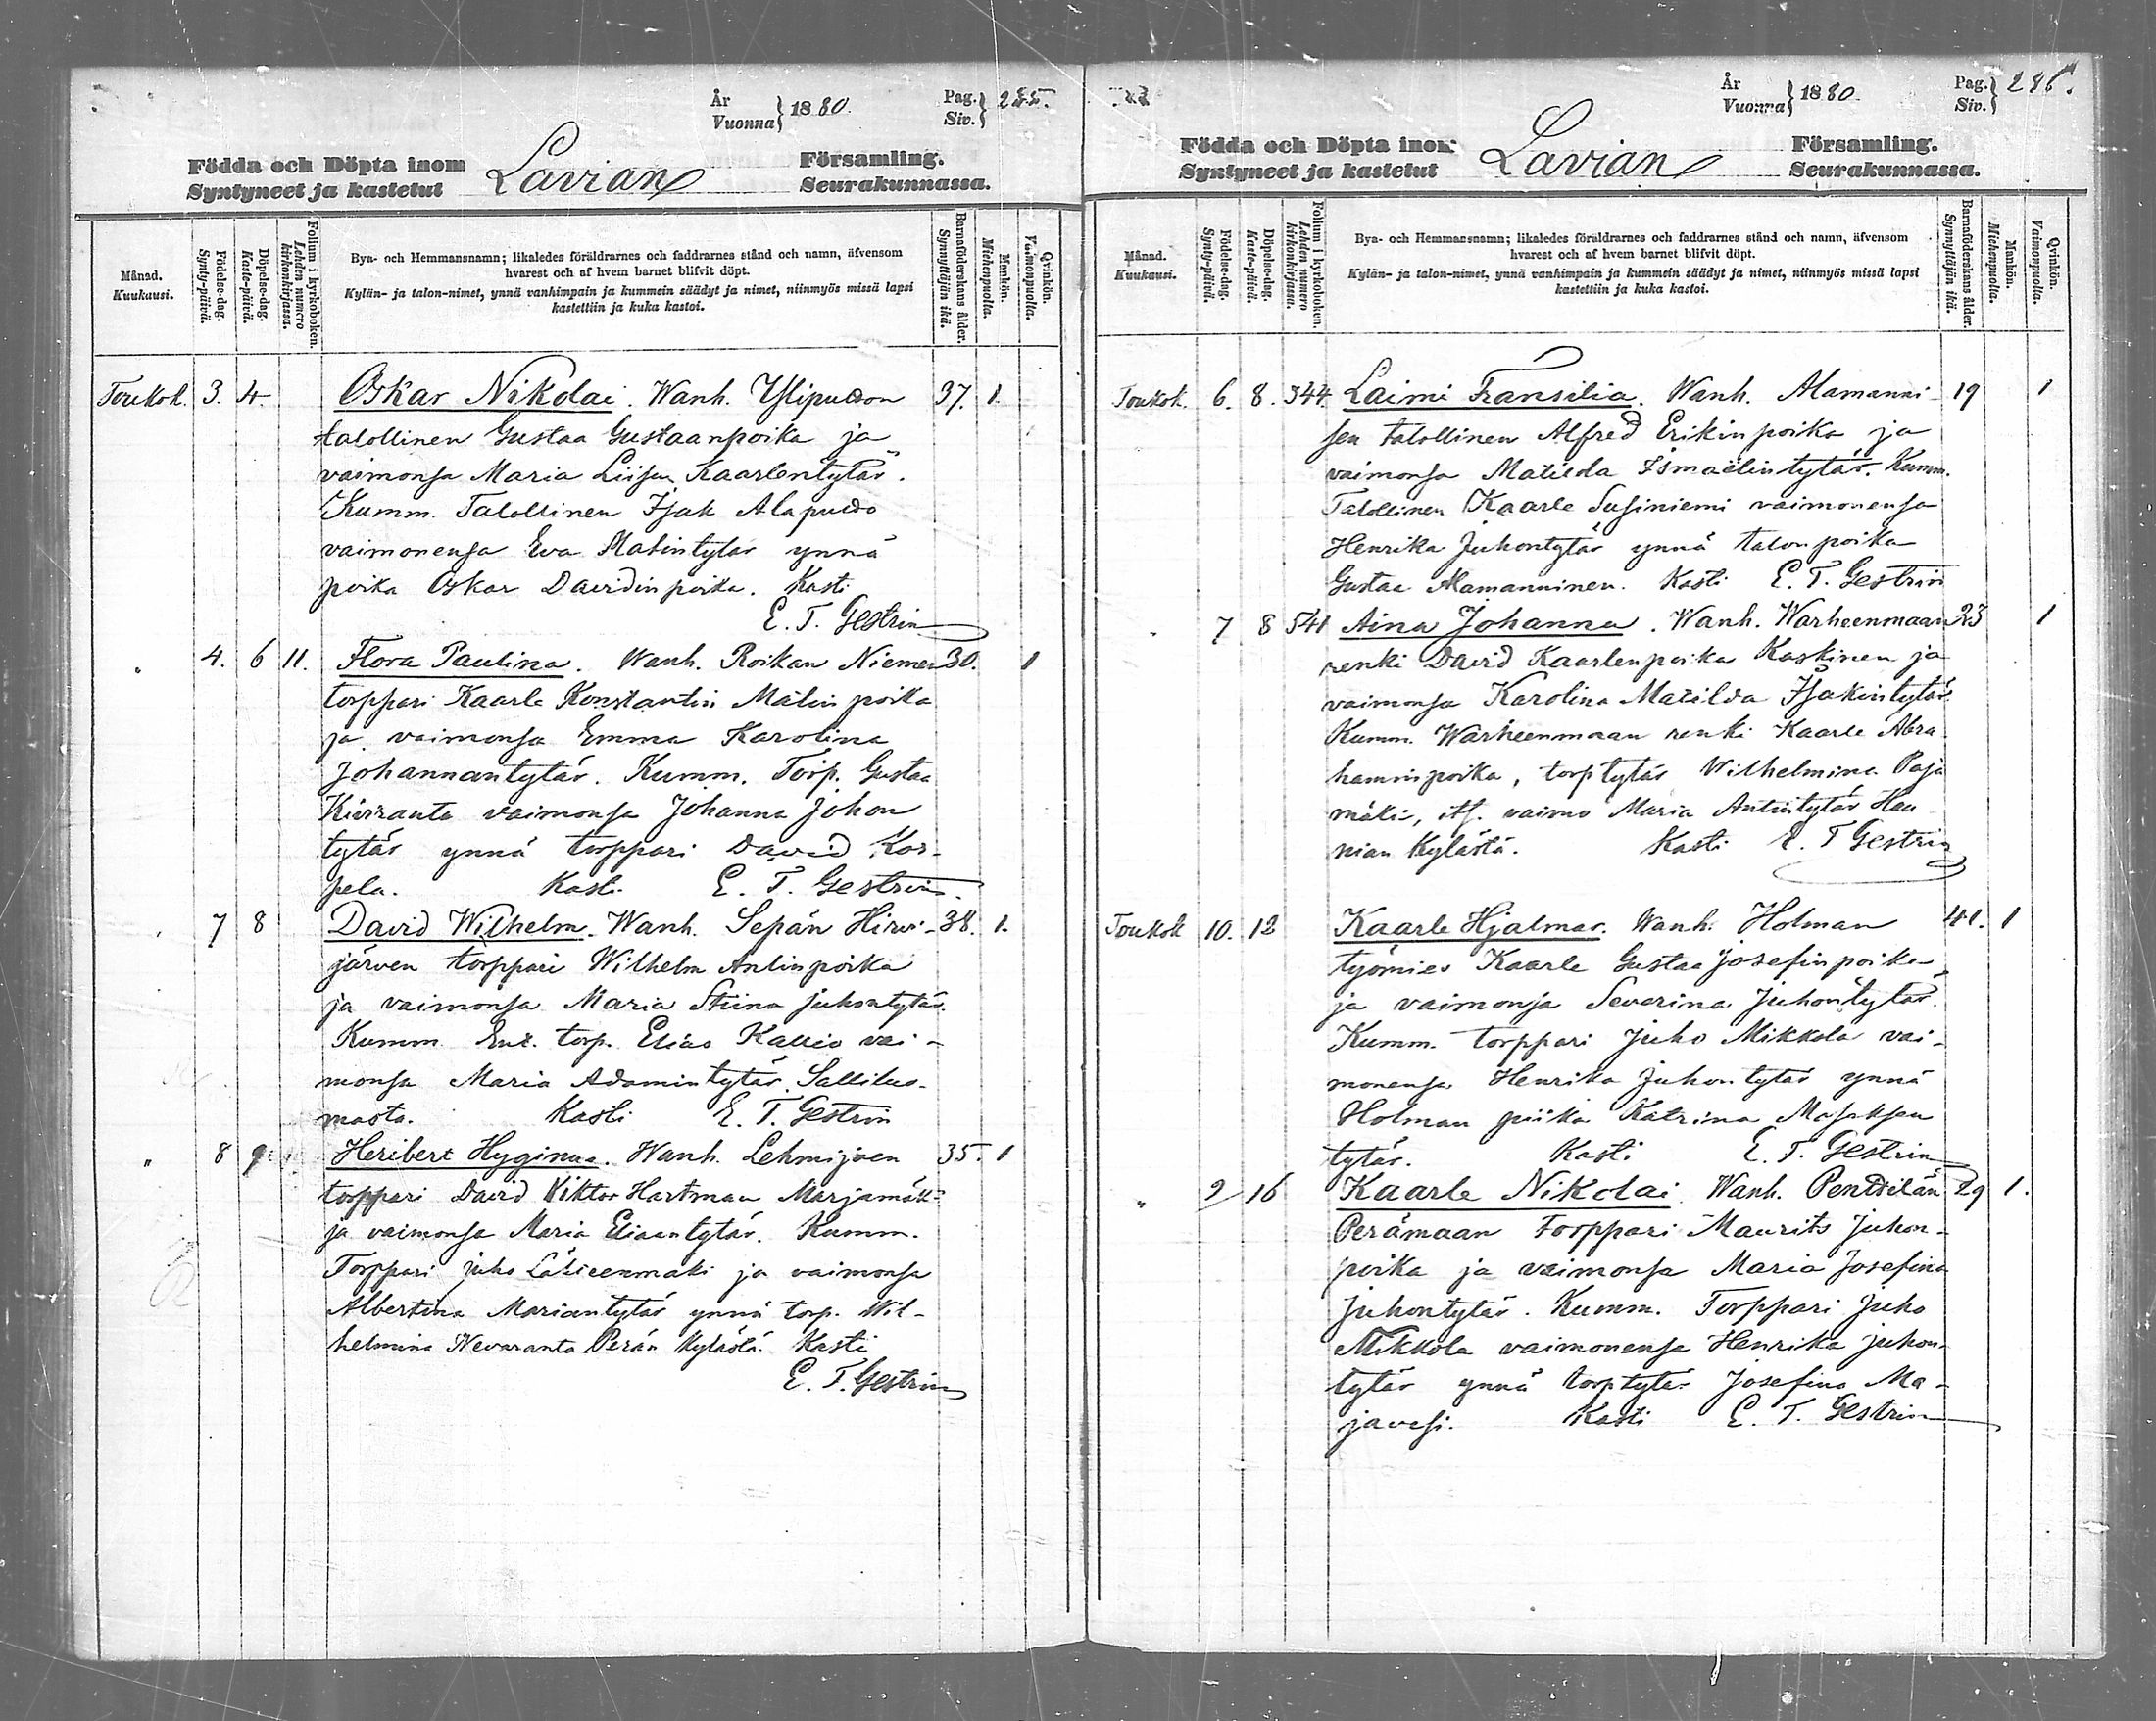 År
Vuonna } 1880.
Pag.
Siv. } 285.
Födda och Döpta inom
Syntyneet ja kastetut
Lavian
Församling.
Seurakunnassa.
Månad.
Kuukausi.
Födelse-dag.
Synty-päivä.
Döpelse-dag.
Kaste-päivä.
Folium i kyrkoboken.
Lehden numero
kirkonkirjassa.
Bya- och Hemmansnamn; likaledes föräldrarnes och faddrarnes stånd och namn, äfvensom
hvarest och af hvem barnet blifvit döpt.
Kylän- ja talon-nimet, ynnä vanhimpain ja kummein säädyt ja nimet, niinmyös missä lapsi
kastettiin ja kuka kastoi.
Barnaföderskans ålder.
Synnyttäjän ikä.
Mankön.
Miehenpuolia.
Qvinkön.
Vaimonpuolia.
Toukok. 3. 4. Oskar Nikolai. Wanh. Ylipudon 37. 1.
talollinen Gustaa Gustaanpoika ja
vaimonsa Maria Liisa Kaarlentytär.
Kumm. Talollinen Isak Alapuudo
vaimonensa Eva Matintytär ynnä
poika Oskar Davidinpoika. Kasti
E. T. Gestrin
" 4. 6 11. Flora Paulina. Wanh. Roikan Niemen 30. 1
torppari Kaarle Konstantin Matinpoika
ja vaimonsa Emma Karolina
Johannantytär. Kumm. Torp. Gustaa
Kiviranta vaimonsa Johanna Johon
tytär ynnä torppari David Kor-
pela. Kasti E. T. Gestrin.
" 7 8 David Wilhelm. Wanh. Sepän Hirvi- 38. 1.
järven torppari Wilhelm Antinpoika
ja vaimonsa Maria Stiina Juhontytär.
Kumm. Ent. torp. Elias Kallio vai-
monsa Maria Adamintytär Sallilus-
masta. Kasti E. T. Gestrin
" 8 9 Heribert Hyginus. Wanh. Lehmijoen 35. 1
torppari David Viktor Hartman Marjamäki
ja vaimonsa Maria Eliaantytär. Kumm.
Torppari Juho Läteenmäki ja vaimonsa
Albertina Mariantytär ynnä torp. Wil-
helmina Nevaranta Perän kylästä. Kasti
E. T. Gestrin
År
Vuonna } 1880.
Pag.
Siv. } 286.
Födda och Döpta inom
Syntyneet ja kastetut
Lavian
Församling.
Seurakunnassa.
Månad.
Kuukausi.
Födelse-dag.
Synty-päivä.
Döpelse-dag.
Kaste-päivä.
Folium i kyrkoboken.
Lehden numero
kirkonkirjassa.
Bya- och Hemmansnamn; likaledes föräldrarnes och faddrarnes stånd och namn, äfvensom
hvarest och af hvem barnet blifvit döpt.
Kylän- ja talon-nimet, ynnä vanhimpain ja kummein säädyt ja nimet, niinmyös missä lapsi
kastettiin ja kuka kastoi.
Barnaföderskans ålder.
Synnyttäjän ikä.
Mankön.
Miehenpuolia.
Qvinkön.
Vaimonpuolia.
Toukok. 6. 8. 344. Laimi Fransilia. Wanh. Alamanni- 19 1
sen talollinen Alfred Erikinpoika ja
vaimonsa Matilda Ismaëlintytär. Kumm.
Talollinen Kaarle Susiniemi vaimonensa
Henrika Juhontytär ynnä talonpoika
Gustaa Alamanninen. Kasti E. T. Gestrin
" 7 8 541 Aina Johanna. Wanh. Warheenmaan 23 1
renki David Kaarlenpoika Koskinen ja
vaimonsa Karolina Matilda Isakintytär.
Kumm. Warheenmaan renki Kaarle Abra
haminpoika, torptytär Wilhelmina Paja
mäki, its. vaimo Maria Antintytär Hau
nian kylästä. Kasti E. T Gestrin
Toukok 10. 12 Kaarle Hjalmar. Wanh. Holman 41. 1
työmies Kaarle Gustaa Josefinpoika
ja vaimonsa Severina Juhontytär.
Kumm. torppari Juho Mikkola vai-
monensa Henrika Juhontytär ynnä
Holman piika Katrina Majaksen
tytär. Kasti E. T. Gestrin
" 9 16 Kaarle Nikolai. Wanh. Penttilän 29 1.
Perämaan torppari Maurits Juhon-
poika ja vaimonsa Maria Josefina
Juhontytär. Kumm. Torppari Juho
Mikkola vaimonensa Henrika Juhon-
tytär ynnä torptytär Josefina Ma-
javesi. Kasti E. T. Gestrin